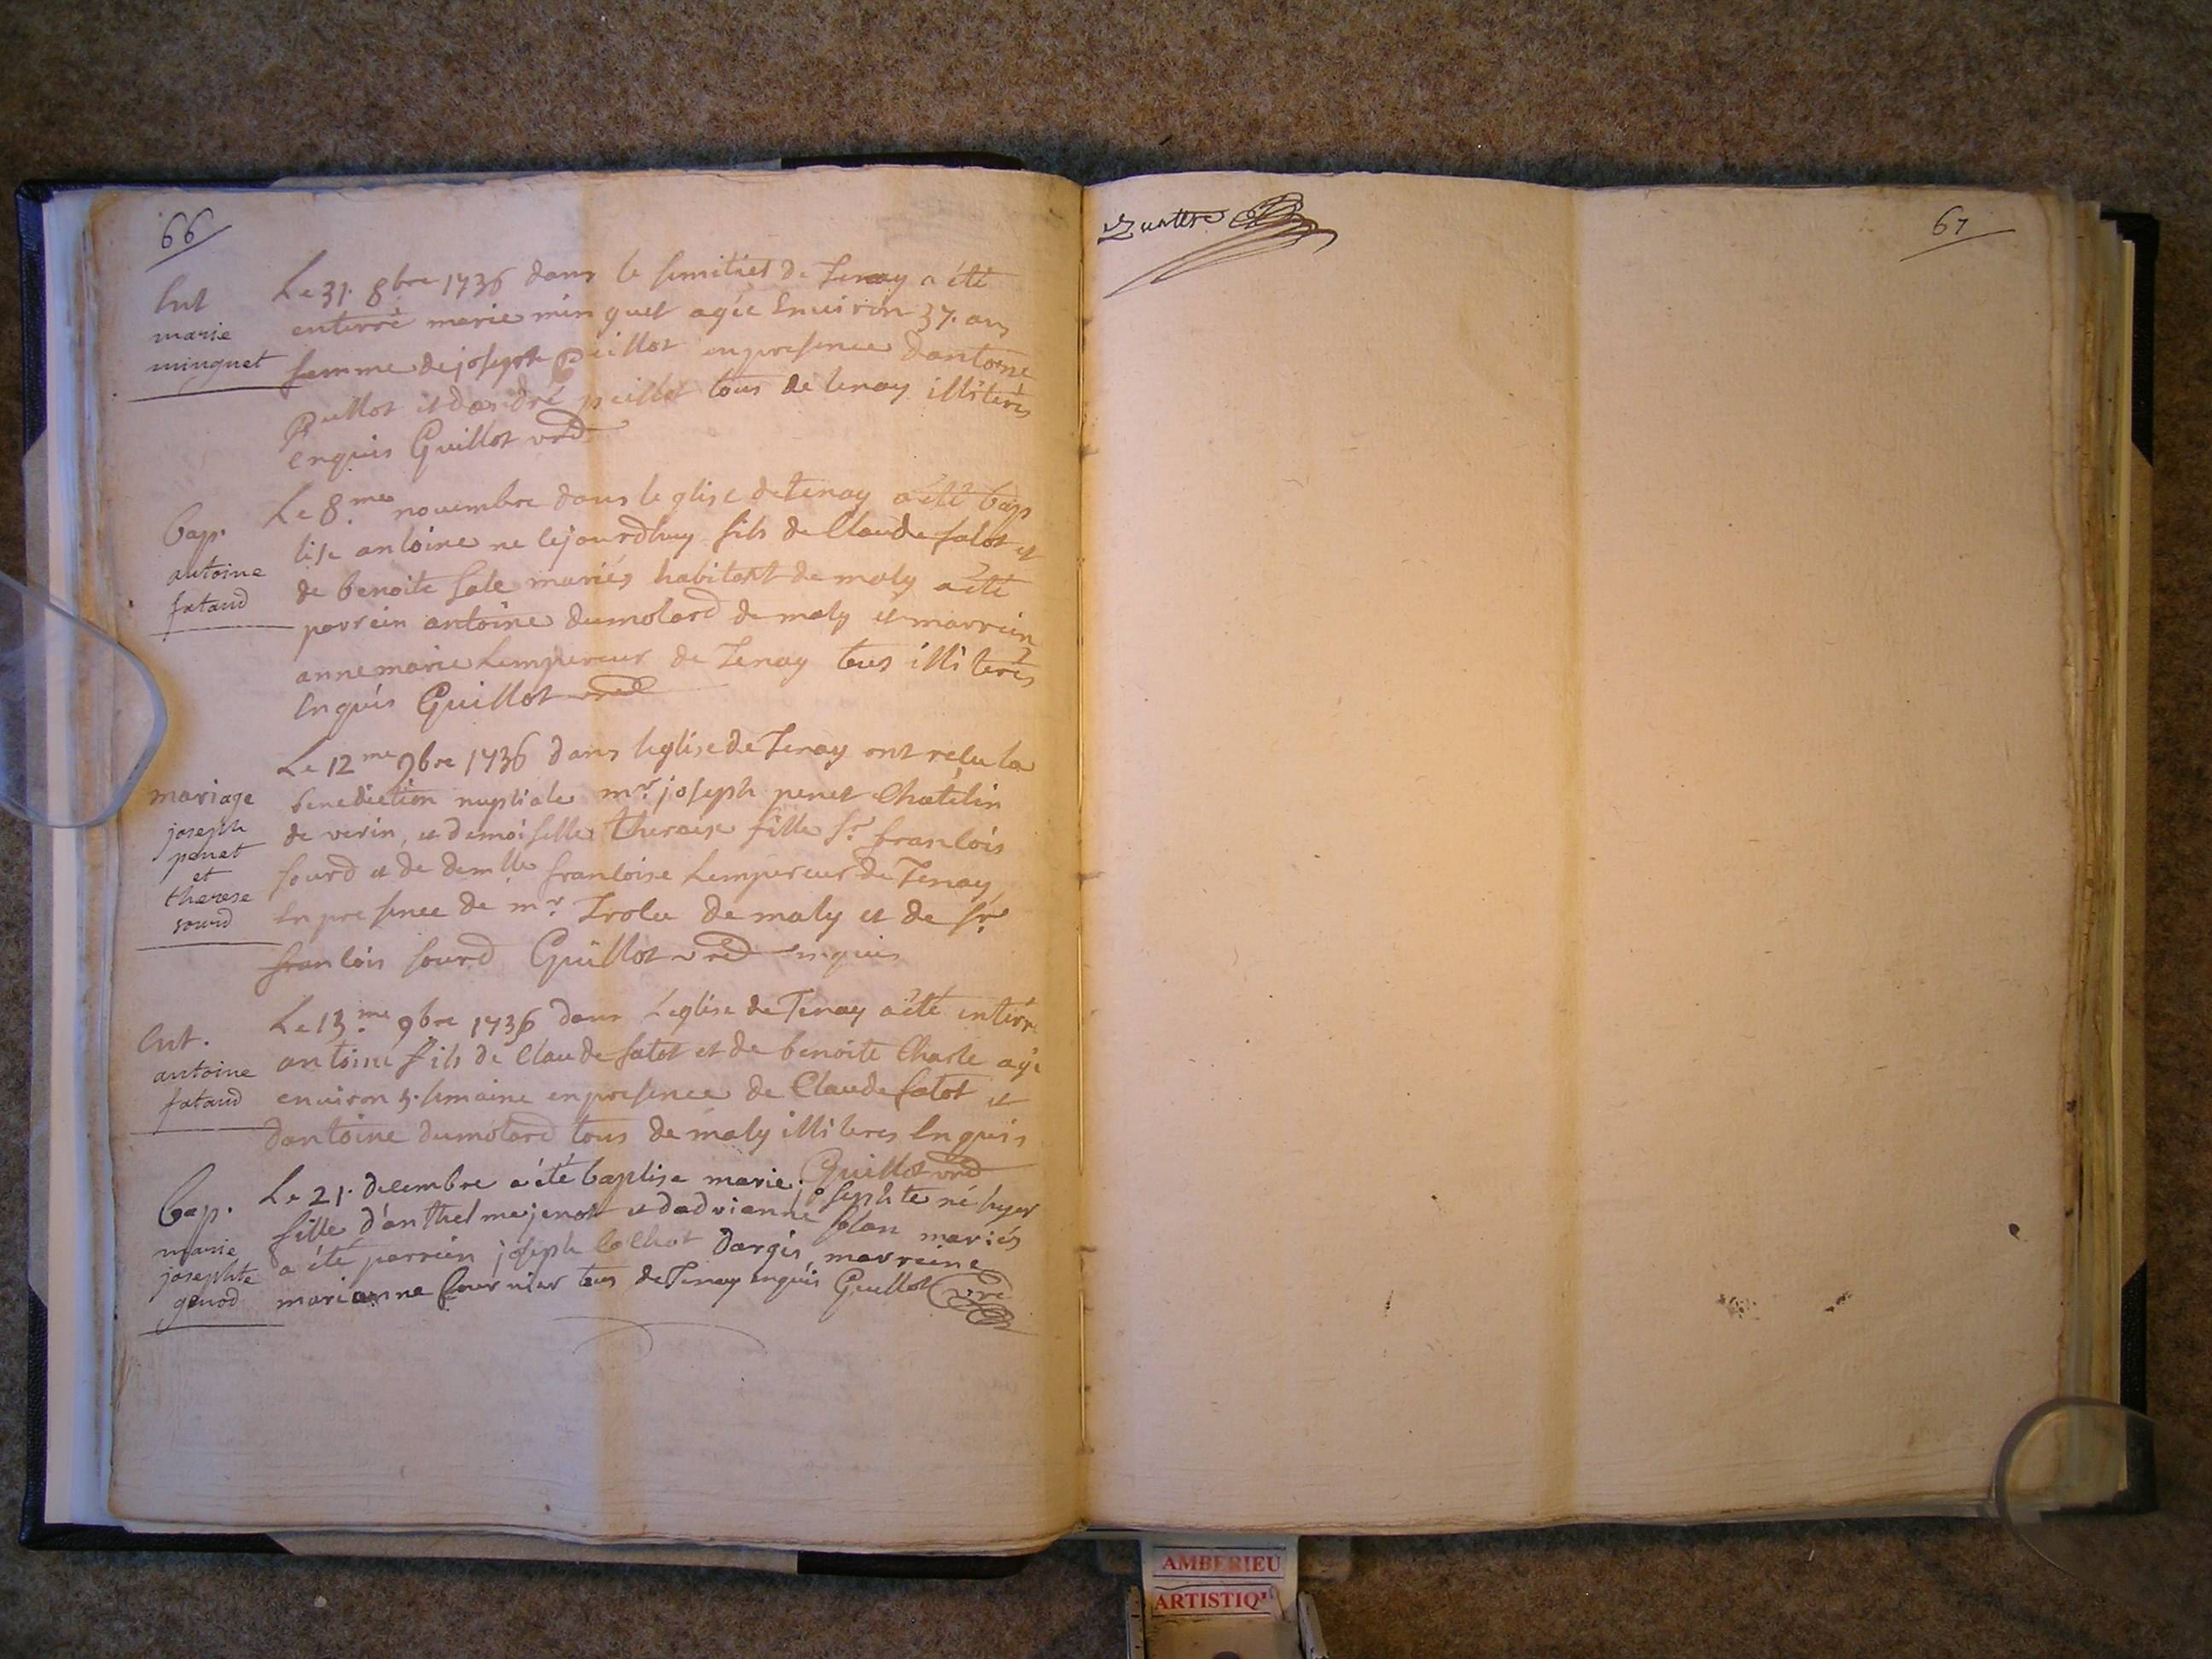 66
Ent
marie
minguet
Le 31. 8bre 1736 dans le semitiet de Tenay a été
enterré marie minguet agée Environ 37. ans
femme de joseph Peillot en presence dantoine
Peillot et dandré peillot tous de tenay illiterés
enquis Guillot
Bap.
antoine
fataud
Le 8.me novembre dans leglise de tenay a été bap
tise antoine ne cejourdhuy fils de Claude fatot et
de benoite mariés habitant de maly a été
parrein antoine dumolard de maly et marrein
anne marie Lempereur de Tenay tous illiterés
Enquis Guillot
mariage
joseph
penet
et
therese
sourd
Le 12me 9bre 1736 dans leglise de Tenay ont reçu la
benediction nuptiale mr. joseph penet Chatelin
de verin, et demoiselle theraise fille Sr. francois
sourd et de demlle francoise Lempereur de Tenay
En presence de mr. de maly et de Sr.
francois sourd Guillot enquis
Ent.
antoine
fataud
Le 13.me 9bre 1736 dans Leglise de Tenay a été interré
antoine fils de Claude fatot et de benoite Charle agé
environ semaine en presence de Claude fatot et
dantoine dumolard tous de maly illiteres Enquis
Guillot
Bap.
marie
josephte
genod
Le 21. decembre a été baptise marie josephte né hyer
fille d'anthelme jenot et dadrianne blan mariés
a été parrein joseph Cochot dargis marreine
marianne fournier tous de Tenay enquis Guillot
67
AMBERIEU
ARTISTIQ